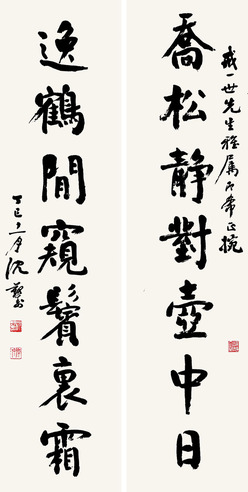 喬松靜對壺中日
戒一世先生雅属即希正捥
逸鶴閒窺鬢裏霜
丁巳之月沈